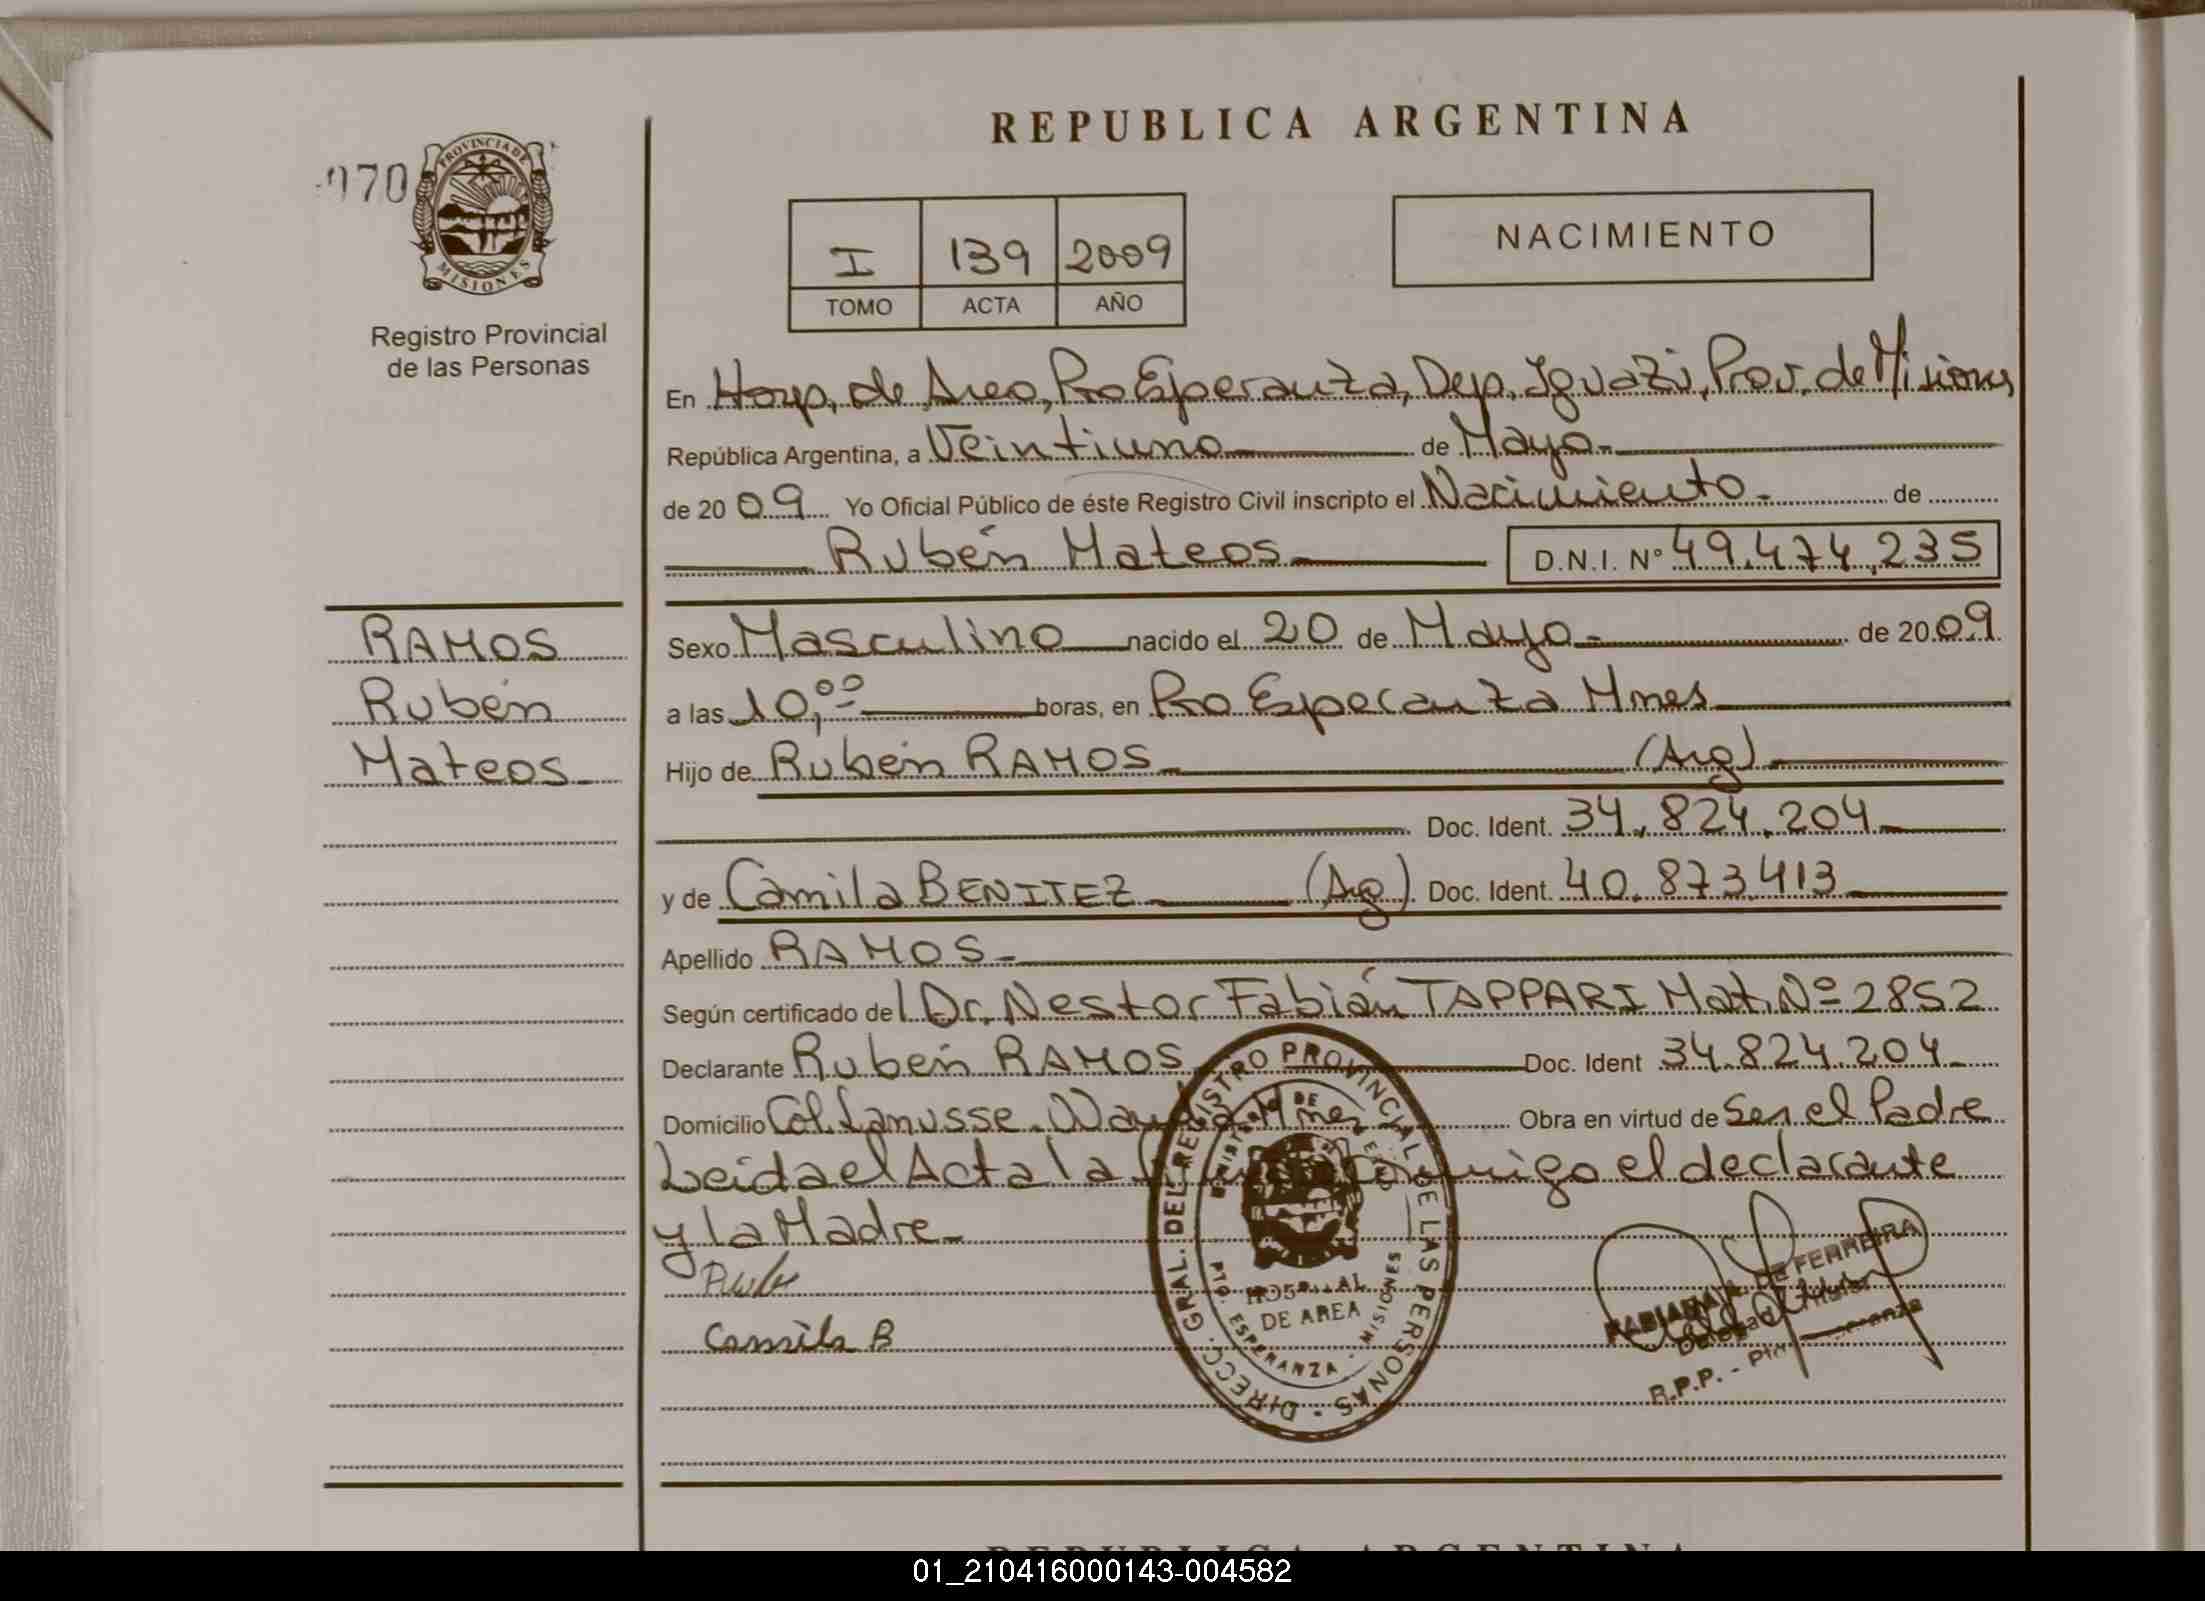 REPUBLICA ARGENTINA
070
PROVINCIA DE
MISIONES
Registro Provincial
de las Personas
I 139 2009
TOMO ACTA AÑO
NACIMIENTO
En Hosp. de Area, Pto Esperanza, Dep. Iguazú, Prov. de Misiones
República Argentina, a Veintiuno de Mayo
de 2009 Yo Oficial Público de éste Registro Civil inscripto el Nacimiento de
Rubén Mateos D.N.I. Nº 49.474.235
RAMOS
Rubén
Mateos
Sexo Masculino nacido el 20 de Mayo de 2009
a las 10,00 horas, en Pto Esperanza Mnes
Hijo de Rubén RAMOS (Arg)
Doc. Ident. 34.824.204
y de Camila BENITEZ (Arg) Doc. Ident. 40.873.413
Apellido RAMOS
Según certificado del Dr. Nestor Fabián TAPPARI Mat. Nº 2852
Declarante Rubén RAMOS Doc. Ident 34.824.204
Domicilio Col. Lanusse. Wanda Mnes Obra en virtud de Ser el Padre
Leida el Acta la conmigo el declarante
y la Madre
Camila B
DIRECC. GRAL. DEL REGISTRO PROVINCIAL DE LAS PERSONAS
HOSPITAL
DE AREA
PTO. ESPERANZA - MISIONES
DE FERREIRA
R.P.P. - Pto.
REPUBLICA ARGENTINA
01_210416000143-004582